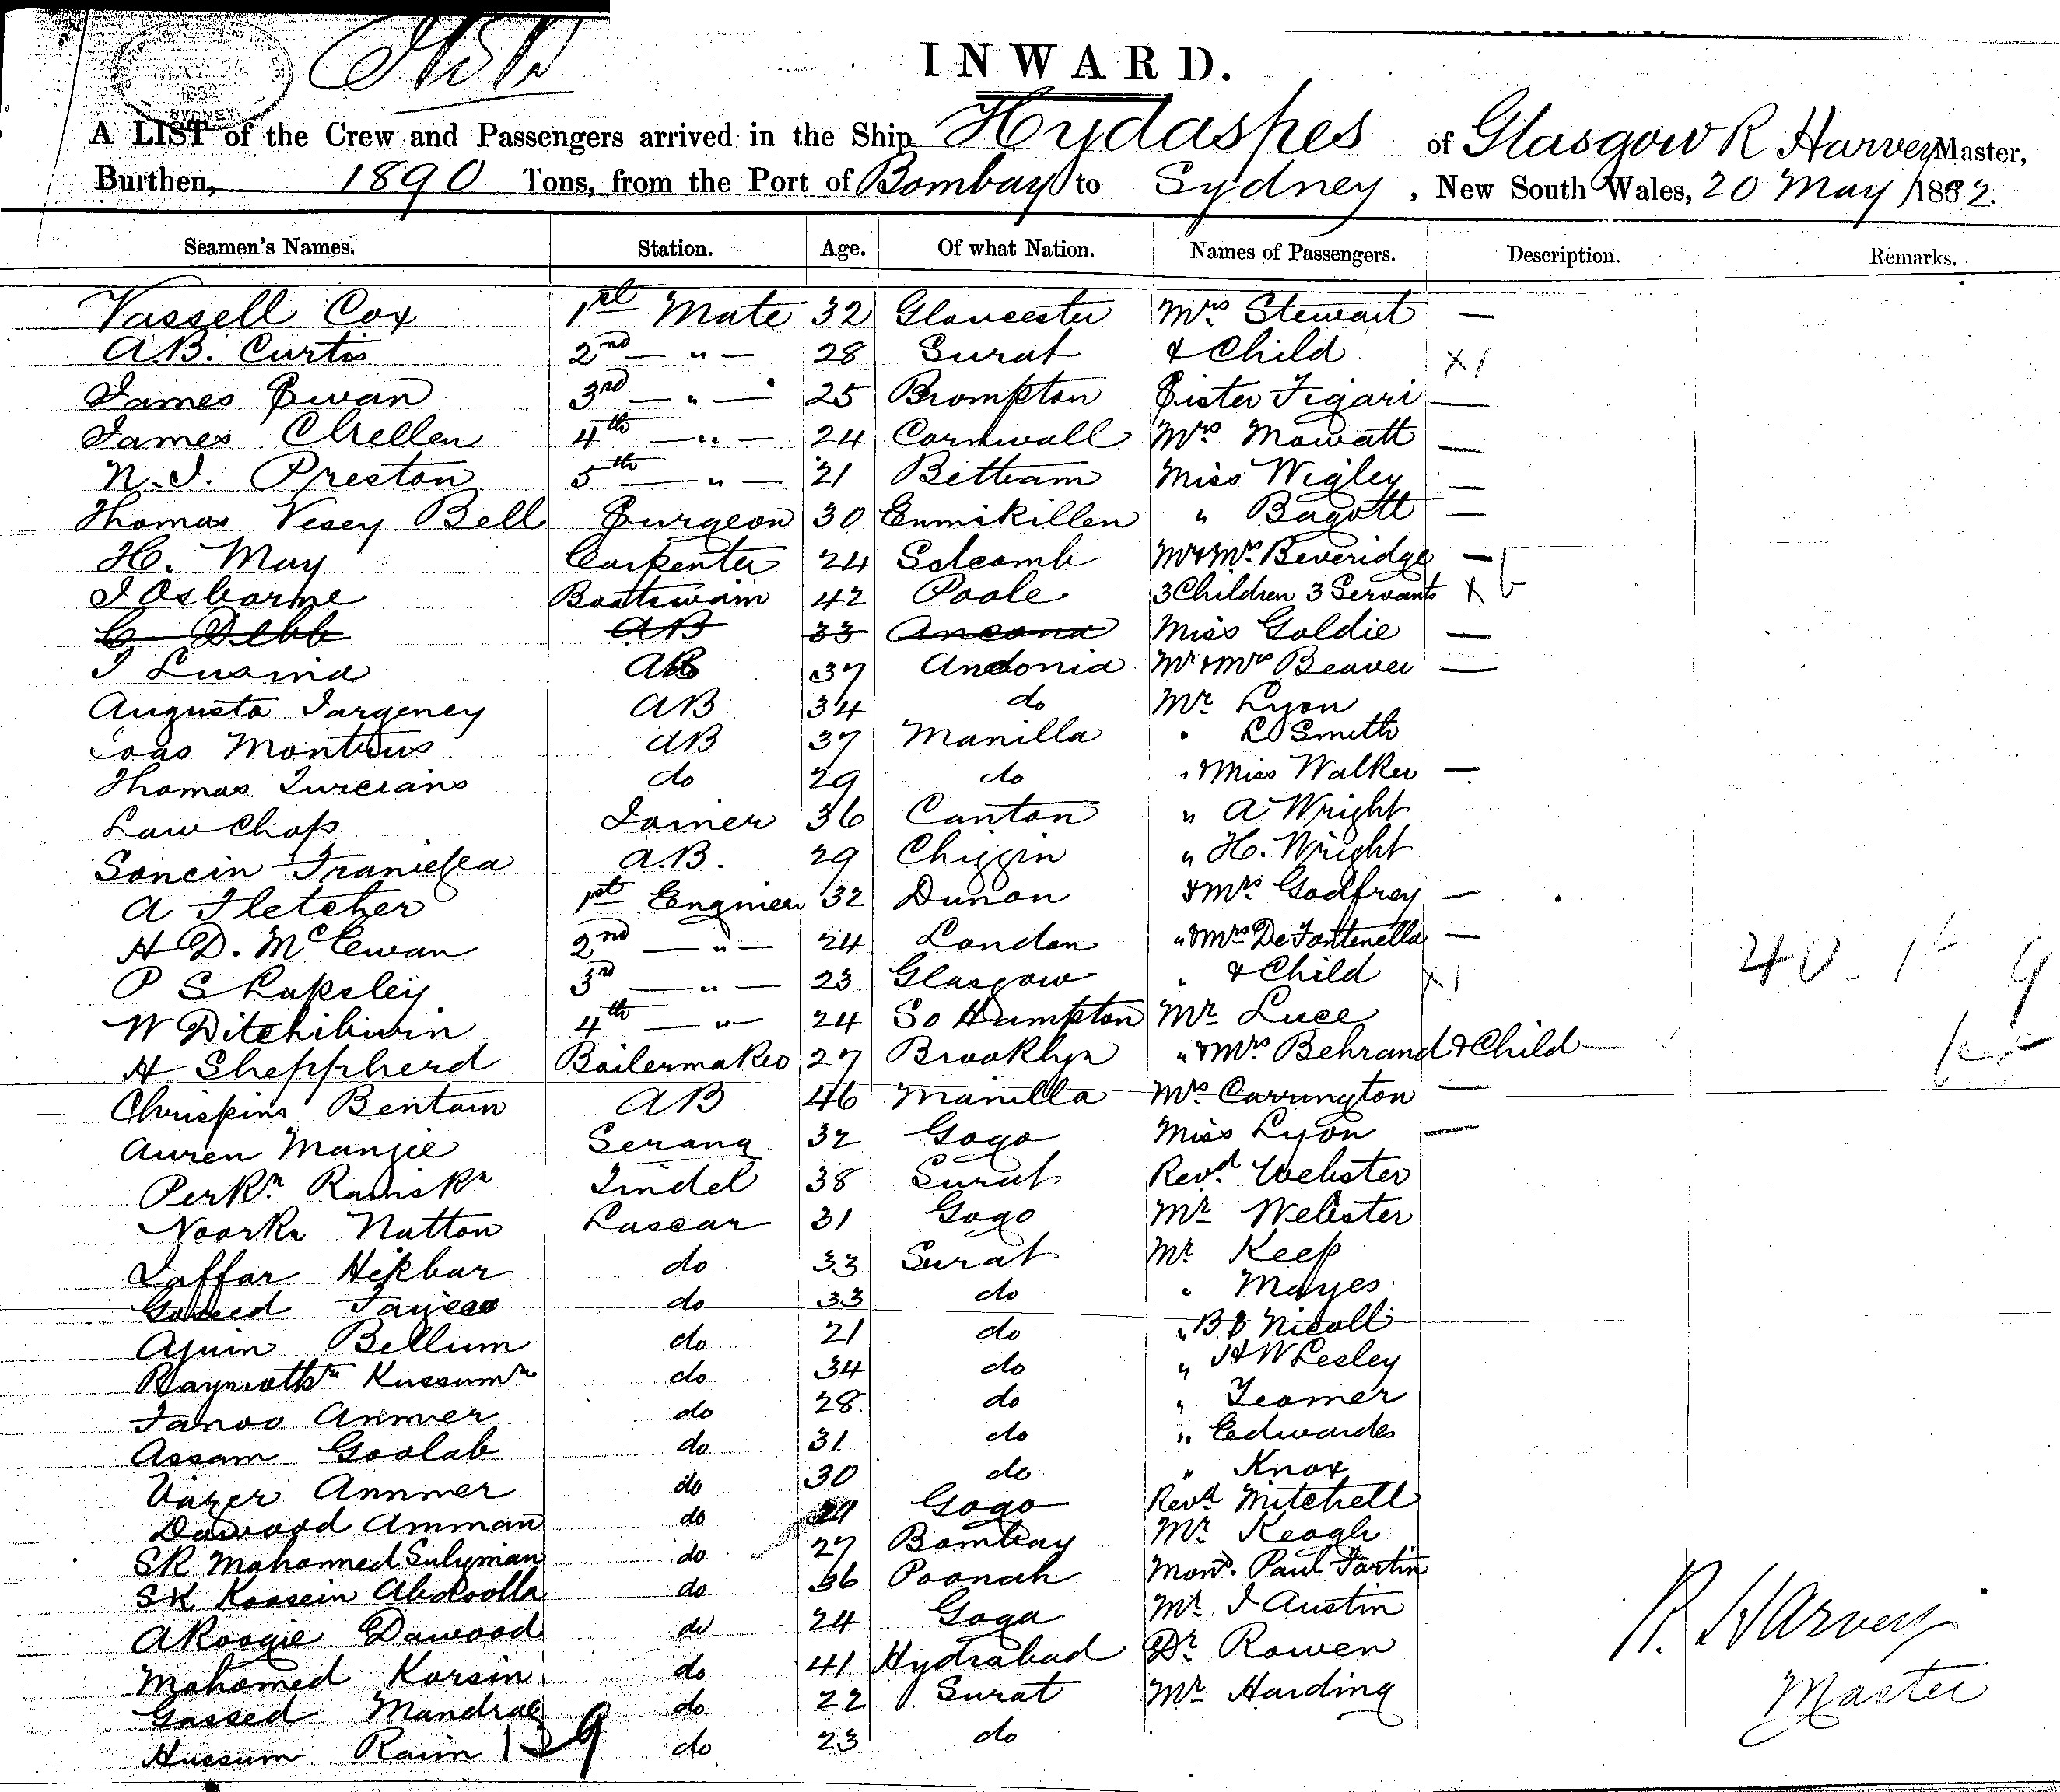 INWARD.
A LIST of the Crew and Passengers arrived in the Ship Hydashes of Glasgow R Harvey Master,
Burthen, 1890 Tons, from the Port of Bombay to Sydney, New South Wales, 20 May 1882.
Seamen's Names. Station. Age. Of what Nation. Names of Passengers. Description. Remarks.
Vassell Cox 1st Mate 32 Gloucester Mrs Stewart —
A.B. Curtis 2nd — " — 28 Surat & Child X1
James Ewan 3rd — " — 25 Brompton Sister Figari —
James Chellen 4th — " — 24 Cornwall Mrs Mowatt —
N. J. Preston 5th — " — 21 Bettram Miss Wigley —
Thomas Vesey Bell Surgeon 30 Enniskillen " Bagott —
H. May Carpenter 24 Salcomb Mr & Mrs Beveridge —
J Osborne Boatswain 42 Poole 3 Children 3 Servants X 6
G Debb AB 33 Ancona Miss Goldie —
J Lusina AB 37 Andonia Mr & Mrs Beaver —
Augusto Jargeney AB 34 do Mr Lyon
Montrus AB 37 Manilla " Smith
Thomas Turcians do 29 do " & Miss Walker —
Law Chop Joiner 36 Canton " A Wright
Soncin A.B. 29 Chiggin " H. Wright
A Fletcher 1st Engineer 32 Dunon & Mrs Godfrey —
H D. McEwan 2nd — " — 24 London " & Mrs De Fontenella —
P S Lapsley 3rd — " — 23 Glasgow " & Child X1
W Ditchburin 4th — " — 24 So Humpton Mr Luce
H Sheppherd Boilermaker 27 Brooklyn " & Mrs Behrand & Child —
Chrispins Bentain AB 46 Manilla Mrs Carrington —
Auren Manjee Serang 32 Gogo Miss Lyon —
Perkn Ramskn Tindel 38 Surat Revd Webster
Noorkn Natton Lascar 31 Gogo Mr Webster
Jaffar Hekbur do 33 Surat Mr Keep
Gossed do 33 do " Mayes
Ajum Bellum do 21 do " B B Nicoll
Kussumn do 34 do " H W Lesley
Fanoo Ammer do 28 do " Yeomer
Assam Goolab do 31 do " Edwardes
Vazer Ammer do 30 do " Knox
Dawood Amman do Gogo Revd Mitchell
SK Mahomed Sulyman do 27 Bombay Mr Keogh
SK Koosein Abdoolla do 36 Poonah Mons. Paul Fortin
AKoogie Dawood do 24 Goga Mr J Austin
Mahomed Korsin do 41 Hydrabad Dr Rowen
Gossed Mandrae do 22 Surat Mr Harding
Hussum Raim 139 do 23 do
R. Harvey
Master